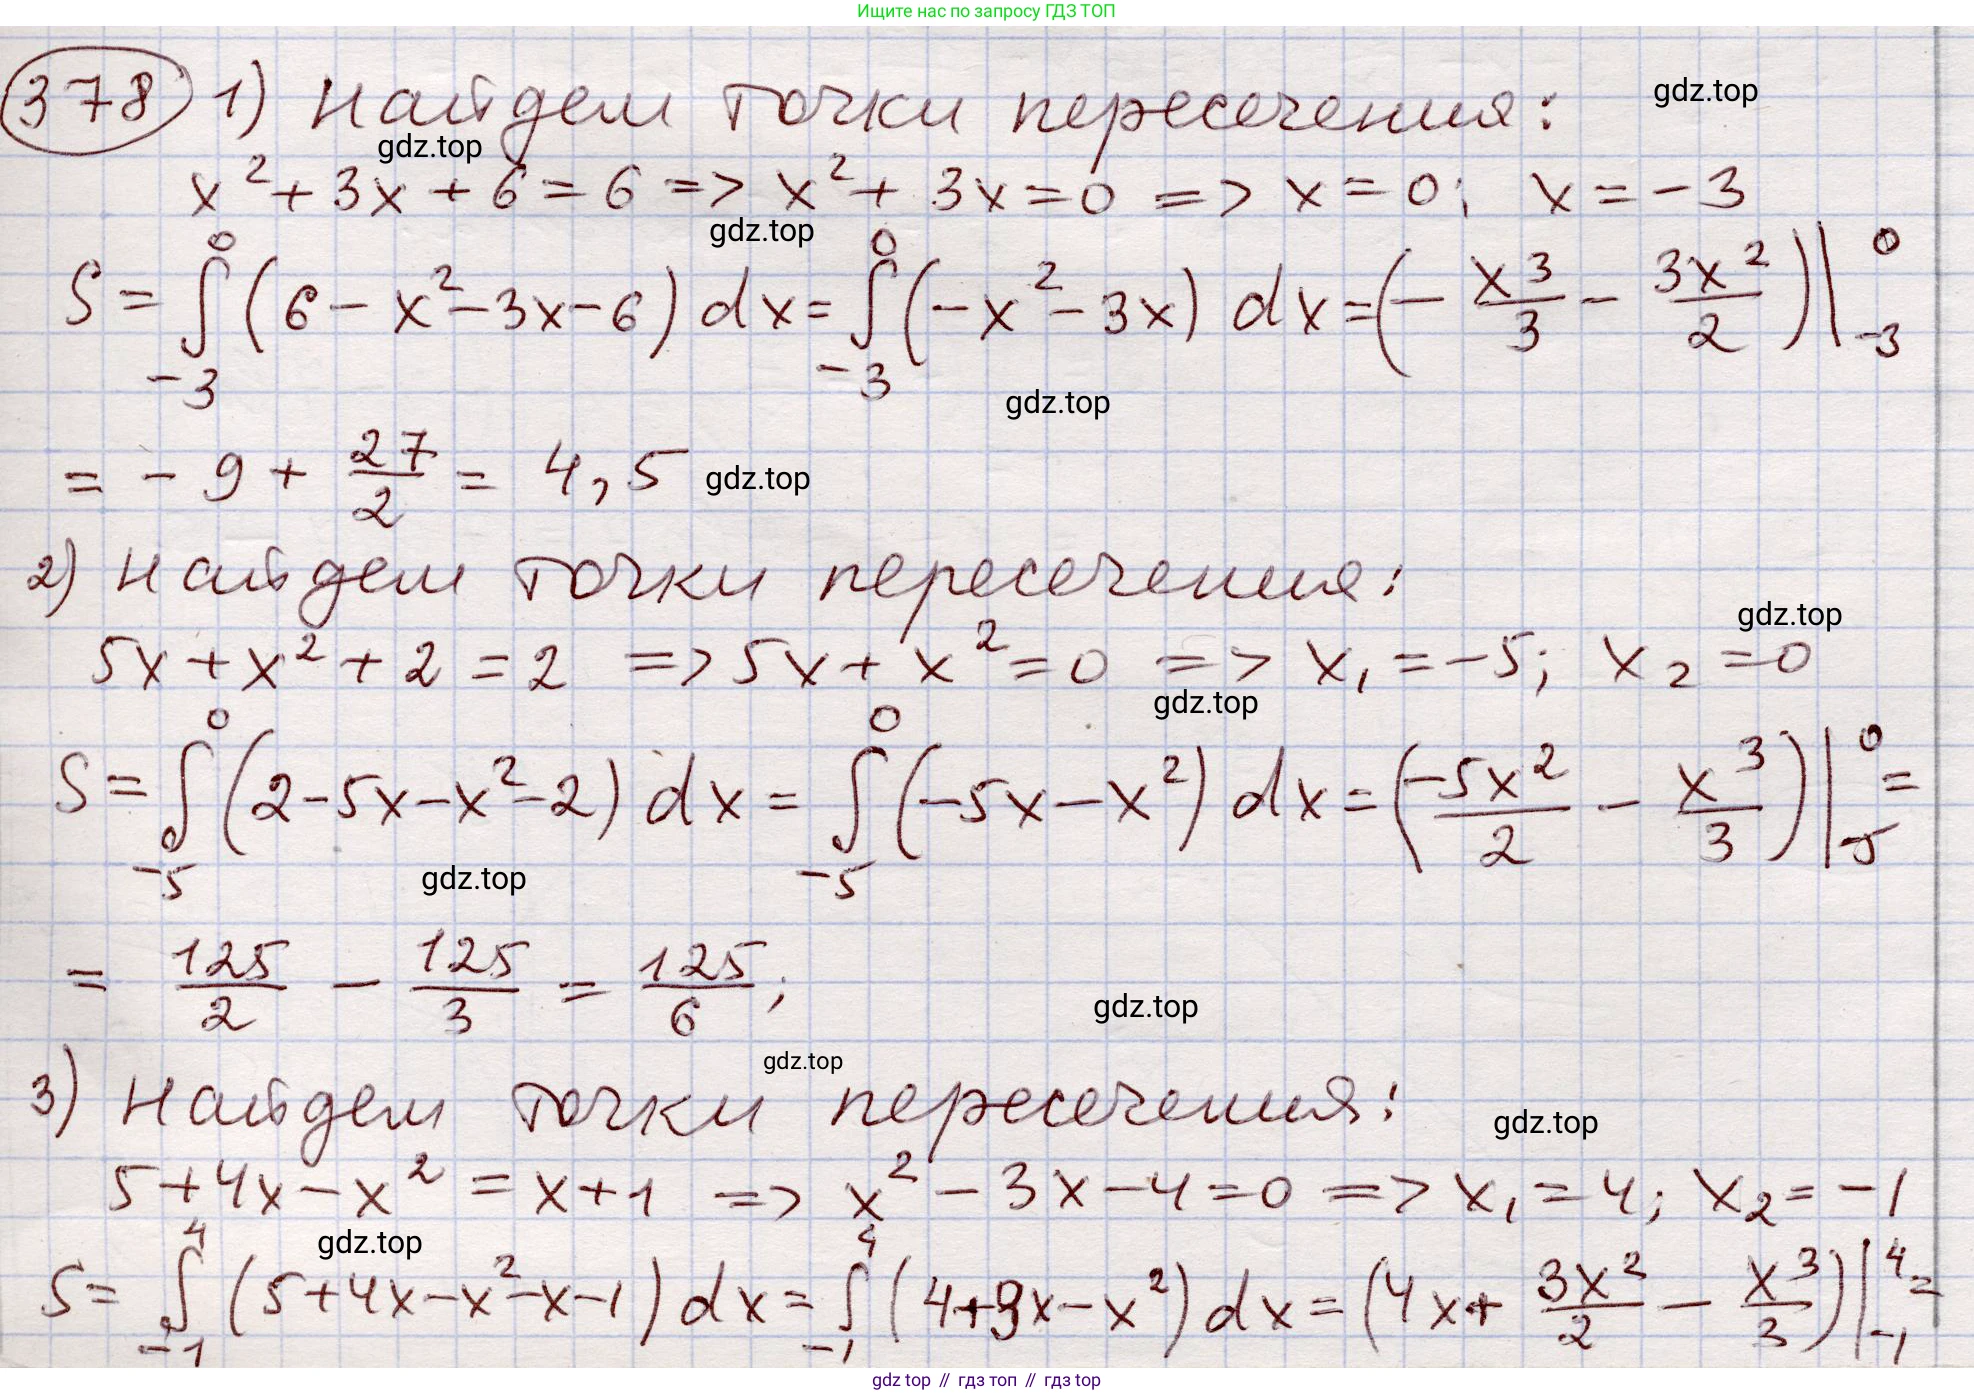 Ищите нас по запросу ГДЗ ТОП
378 1) Найдем точки пересечения: gdz.top
gdz.top
x² + 3x + 6 = 6 => x² + 3x = 0 => x = 0; x = -3
gdz.top
S = ∫₋₃⁰ (6 - x² - 3x - 6) dx = ∫₋₃⁰ (-x² - 3x) dx = (- x³/3 - 3x²/2) |₋₃⁰
gdz.top
= - 9 + 27/2 = 4,5 gdz.top
2) Найдем точки пересечения:
gdz.top
5x + x² + 2 = 2 => 5x + x² = 0 => x₁ = -5; x₂ = 0
gdz.top
S = ∫₋₅⁰ (2 - 5x - x² - 2) dx = ∫₋₅⁰ (-5x - x²) dx = (-5x²/2 - x³/3) |₋₅⁰ =
gdz.top
= 125/2 - 125/3 = 125/6;
gdz.top
gdz.top
3) Найдем точки пересечения:
gdz.top
5 + 4x - x² = x + 1 => x² - 3x - 4 = 0 => x₁ = 4; x₂ = -1
gdz.top
S = ∫₋₁⁴ (5 + 4x - x² - x - 1) dx = ∫₋₁⁴ (4 + 3x - x²) dx = (4x + 3x²/2 - x³/3) |₋₁⁴ =
gdz top // гдз топ // гдз top